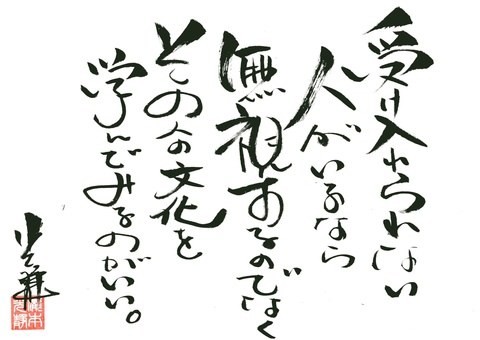 受け入れられない
人がいるなら
無視するのでなく
その人の文化を
学んでみるのがいい。